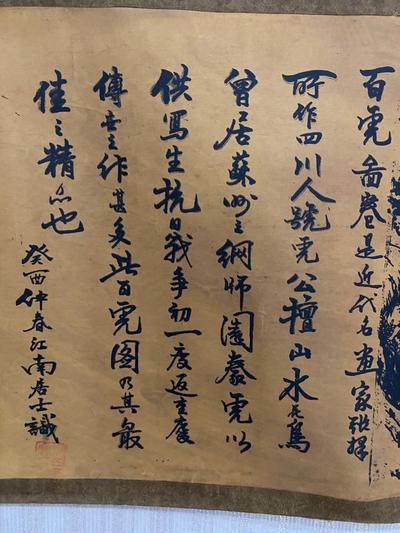 百虎啚卷是近代名畫家張擇
所作四川人號虎公擅山水花鳥
曾居蘇州之網師園豢虎以
供寫生抗日戰争初一度返重慶
傳世之作甚多此百虎图乃其最
佳之精品也
癸酉仲春江南居士識